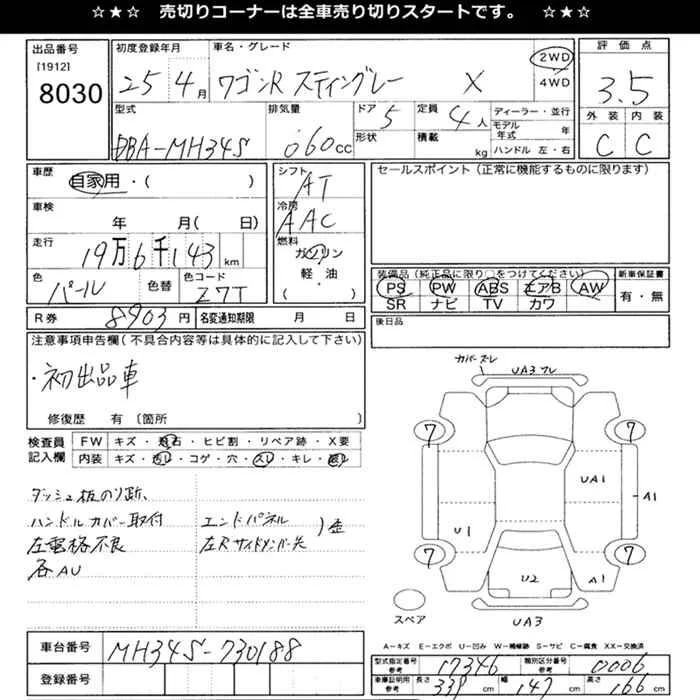 ☆★☆ 売切りコーナーは全車売り切りスタートです。 ☆★☆
出品番号 初度登録年月 車名・グレード 評価点
[1912]
8030
25 4月 ワゴンR スティングレー X 2WD 4WD 3.5
型式 排気量 ドア 5 定員 4人 ディーラー・並行 外装 内装
DBA-MH34S 060cc 形状 積載 kg モデル年式 年 C C
ハンドル 左・右
車歴 自家用・( ) シフト AT セールスポイント(正常に機能するものに限ります)
車検 年 月( 日) 冷房 AAC
走行 19万6千143km 燃料 ガソリン
軽・油
・( )
色 パール 色替 色コード Z7T
装備品(純正品に限り○をつけてください) 新車保証書
PS PW ABS エアB AW 有・無
SR ナビ TV カワ
R券 8903円 名変通知期限 月 日 後日品
注意事項申告欄(不具合内容等は具体的に記入して下さい)
・初出品車
修復歴 有〔箇所
検査員記入欄 FW キズ・飛石・ヒビ割・リペア跡・X要
内装 キズ・汚レ・コゲ・穴・スレ・キレ・
ダッシュ板のり跡、
ハンドルカバー取付 エンドパネル
左電格不良 左Rサイドメンバー先 )歪
各AU
カバーズレ UA3ワレ
7 7
UA1 A1
U1
7 7
U2 A1
スペア UA3
A-キズ E-エクボ U-凹み W-補修跡 S-サビ C-腐食 XX-交換済
車台番号 MH34S-730188
登録番号
型式指定番号 参考 17346 類別区分番号 参考 0006
車庫証明用 参考 長さ 339cm 幅 147cm 高さ 166cm